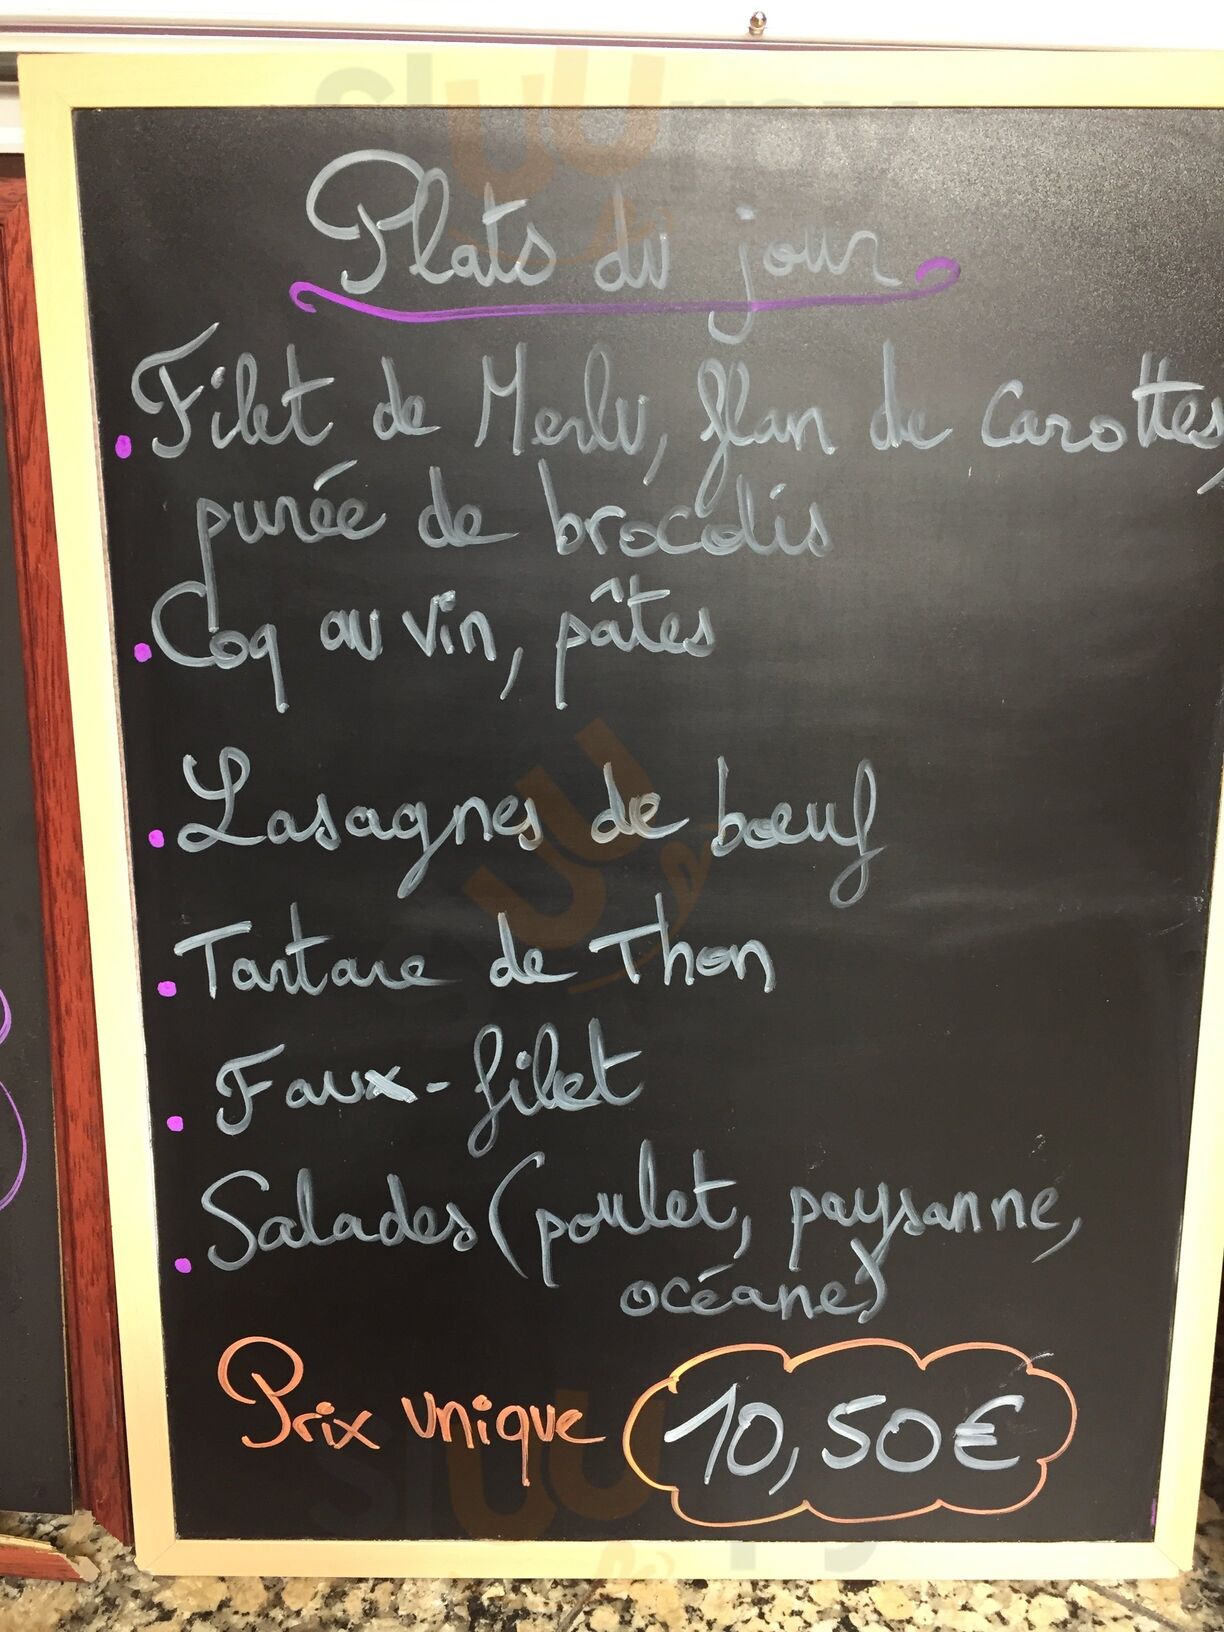 Plats du jour
Filet de Merlu, flan de carottes,
purée de brocolis
Coq au vin, pâtes
Lasagnes de bœuf
Tartare de Thon
Faux-filet
Salades (poulet, paysanne,
océane)
Prix unique 10,50€